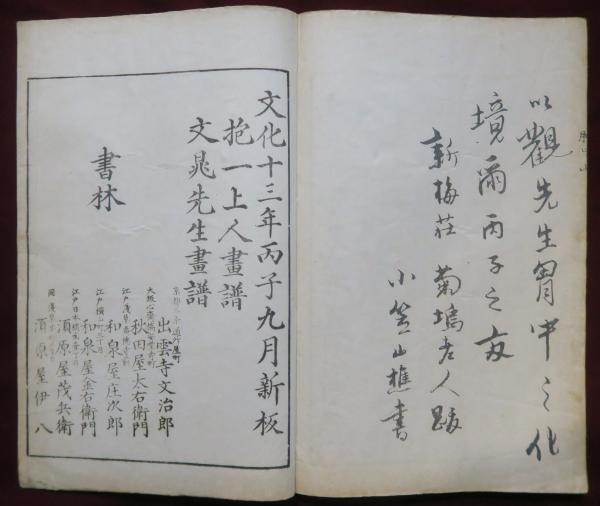 以觀先生胷中之化
境爾丙子之夏
新梅莊 菊塢老人跋
小笠山樵書
文化十三年丙子九月新板
抱一上人畫譜
文晁先生畫譜
書林
出雲寺文治郎
秋田屋太右衛門
和泉屋庄次郎
和泉屋金右衛門
須原屋茂兵衛
須原屋伊八